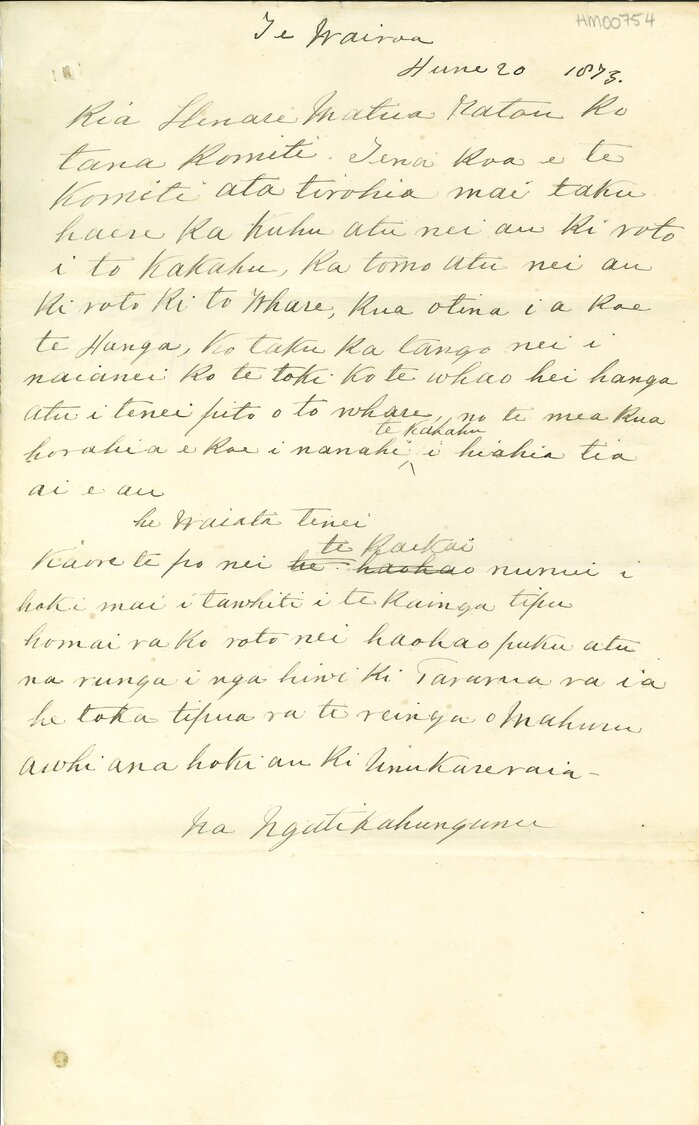 HM00754
Te Wairoa
Hune 20 1873.
Kia Henare Matua Ratou ko
tana Komiti. Tena koa e te
Komiti ata tirohia mai taku
haere ka kuhu atu nei au ki roto
i to Kakahu, ka tomo atu nei au
ki roto ki to Whare, kua otina i a koe
te Hanga, ko taku ka tango nei i
naianei ko te toki ko te whao hei hanga
atu i tenei pito o to whare, no te mea kua
horahia e koe i nanahi te Kakahu i hiahia tia
ai e au
he Waiata tenei
Kaore te po nei he haohao te Kaikai nunui i
hoki mai i tawhiti i te Kainga tipu
homai ra ko roto nei haohao puku atu
na runga i nga hiwi ki Tararua ra ia
he toka tipua ra te reinga o Mahuru
awhi ana hoki au ki Unukarevaia-
Na Ngatikahungunu